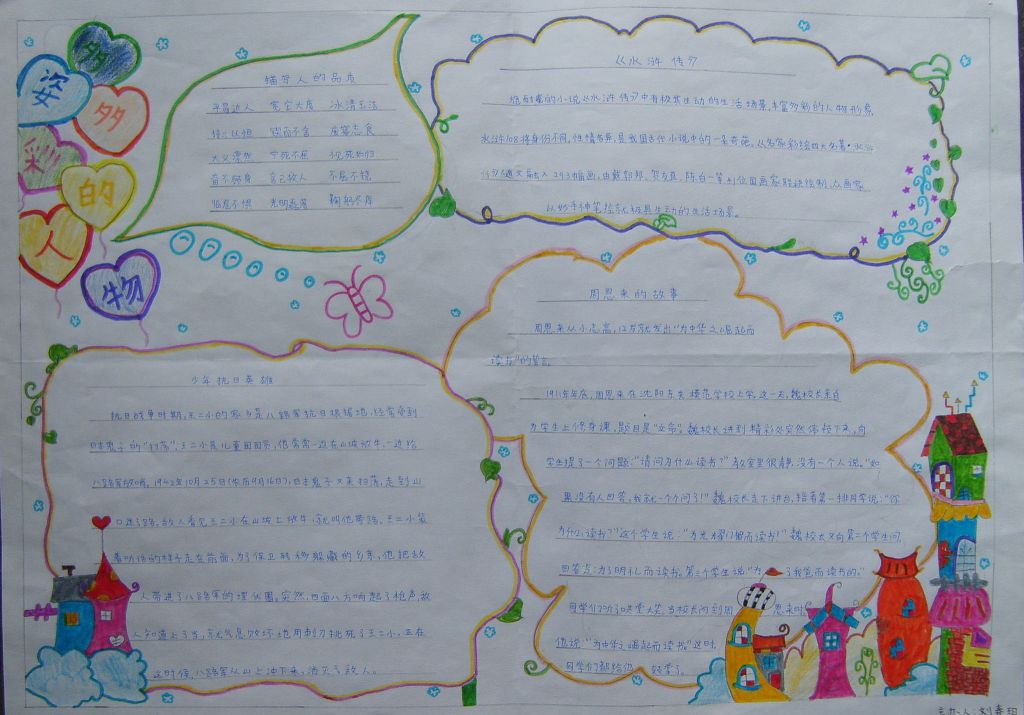 多
姿
多
彩
的
人
物
描写人的品质
平易近人 宽宏大度 冰清玉洁
持之以恒 锲而不舍 废寝忘食
大义凛然 宁死不屈 视死如归
奋不顾身 舍己救人 不屈不挠
临危不惧 光明磊落 鞠躬尽瘁
《水浒传》
施耐庵的小说《水浒传》中有极其生动的生活场景,丰富多彩的人物形象,
水浒108将身份不同,性情各异,是我国古代小说中的一朵奇葩。《名家彩绘四大名著·水浒
以妙手神笔绘就极具生动的生活场景。
周恩来的故事
周恩来从小志高,12岁就发出"为中华之崛起而
读书"的誓言。
1911年年底,周恩来在沈阳东关模范学校上学,这一天,魏校长亲自
为学生上修身课,题目是"立命",魏校长讲到精彩处突然停顿下来,向
学生提了一个问题:"请问为什么读书?"教室里很静,没有一个人说。"如
果没有人回答,我就一个个问了!"魏校长走下讲台,指着第一排同学说:"你
为什么读书?"这个学生说:"为光耀门楣而读书!"魏校长又向第二个学生问,
回答是:为了明礼而读书。第三个学生说"为 了我爸而读书的。"
同学们 哄堂大笑,当校长问到周 恩来时
他说"为中华之崛起而读书"这时
同学们都给他 鼓掌了。
少年抗日英雄
抗日战争时期,王二小的家乡是八路军抗日根据地,经常受到
日本鬼子的"扫荡",王二小是儿童团团员,他常常一边在山坡放牛,一边给
八路军放哨。1942年10月25日(农历9月16日),日本鬼子又来扫荡,走到山
口迷了路。敌人看见王二小在山坡上放牛,就叫他带路。王二小装
着听话的样子走在前面,为了保卫转移躲藏的乡亲,他把敌
人带进了八路军的埋伏圈。突然,四面八方响起了枪声,敌
人知道上了当,就气急败坏地用刺刀挑死了王二小。正在
这时候,八路军从山上冲下来,消灭了敌人。